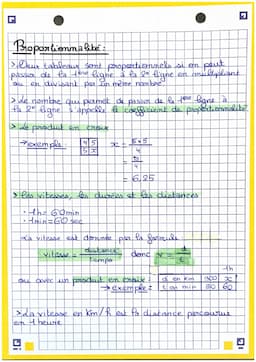 Proportionnalité :
> Deux tableaux sont proportionnels si on peut
passer de la 1ère ligne à la 2e ligne en multipliant
ou en divisant par un même nombre.
> Le nombre qui permet de passer de la 1ère ligne à
la 2e ligne s'appelle le coefficient de proportionnalité
> Le produit en croix
→ exemple : 4 5 x = 5×5
5 x 4
= 6,25
> Les vitesses, les durées et les distances
· 1h = 60min
· 1min = 60sec
La vitesse est donnée par la formule
vitesse = distance donc v = d
temps t
1h
ou avec un produit en croix :
→ exemple : d en km x
t en min 60
> La vitesse en km/h est la distance parcourue
en 1 heure